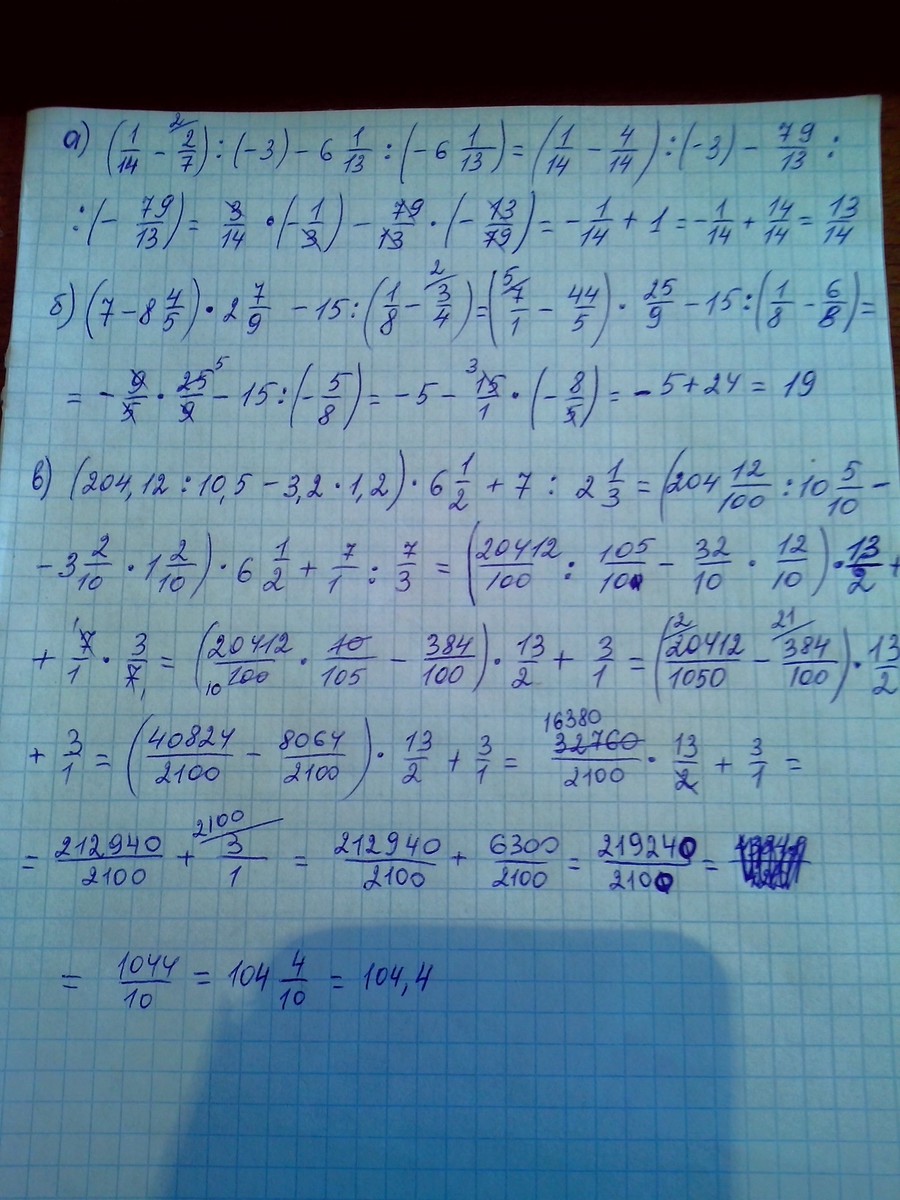 а) (1/14 - 2/7) : (-3) - 6 1/13 : (-6 1/13) = (1/14 - 4/14) : (-3) - 79/13 :
: (- 79/13) = 3/14 · (- 1/3) - 79/13 · (- 13/79) = - 1/14 + 1 = - 1/14 + 14/14 = 13/14
б) (7 - 8 4/5) · 2 7/9 - 15 : (1/8 - 3/4) = (7/1 - 44/5) · 25/9 - 15 : (1/8 - 6/8) =
= - 9/5 · 25/9 - 15 : (- 5/8) = -5 - 15/1 · (- 8/5) = -5 + 24 = 19
в) (204,12 : 10,5 - 3,2 · 1,2) · 6 1/2 + 7 : 2 1/3 = (204 12/100 : 10 5/10 -
- 3 2/10 · 1 2/10) · 6 1/2 + 7/1 : 7/3 = (20412/100 : 105/10 - 32/10 · 12/10) · 13/2 +
+ 7/1 · 3/7 = (20412/100 · 10/105 - 384/100) · 13/2 + 3/1 = (20412/1050 - 384/100) · 13/2
+ 3/1 = (40824/2100 - 8064/2100) · 13/2 + 3/1 = 32760/2100 · 13/2 + 3/1 =
= 212940/2100 + 3/1 = 212940/2100 + 6300/2100 = 219240/2100 =
= 1044/10 = 104 4/10 = 104,4